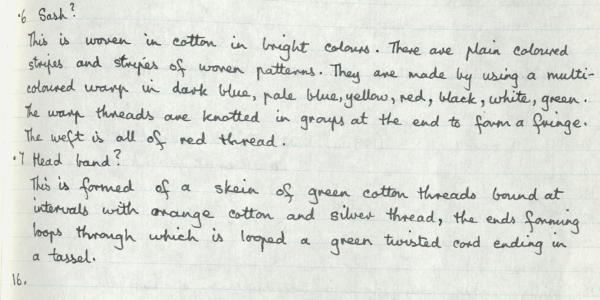 .6 Sash?
This is woven in cotton in bright colours. There are plain coloured
stripes and stripes of woven patterns. They are made by using a multi-
coloured warp in dark blue, pale blue, yellow, red, black, white, green.
The warp threads are knotted in groups at the end to form a fringe.
The weft is all of red thread.
.7 Head band?
This is formed of a skein of green cotton threads bound at
intervals with orange cotton and silver thread, the ends forming
loops through which is looped a green twisted cord ending in
a tassel.
16.